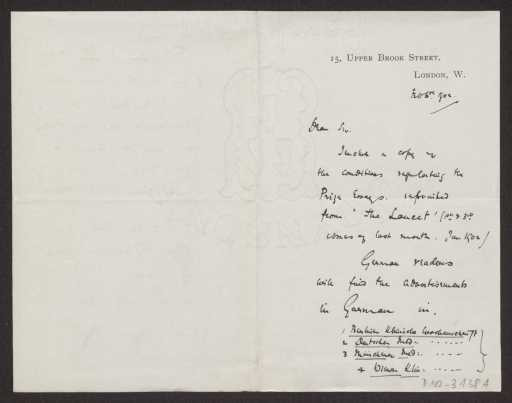 15, UPPER BROOK STREET,
LONDON, W.
Dear Sir.
I enclose a copy of
the conditions regulating the
Prize Essays. reprinted
from 'The Lancet'
issues of last month. Jan 1902)
German readers
will find the advertisements
in German in.
1 Berliner Klinische Wochenschrift
2 Deutsche Med.
3 Münchener Med.
4 Wiener Klin.